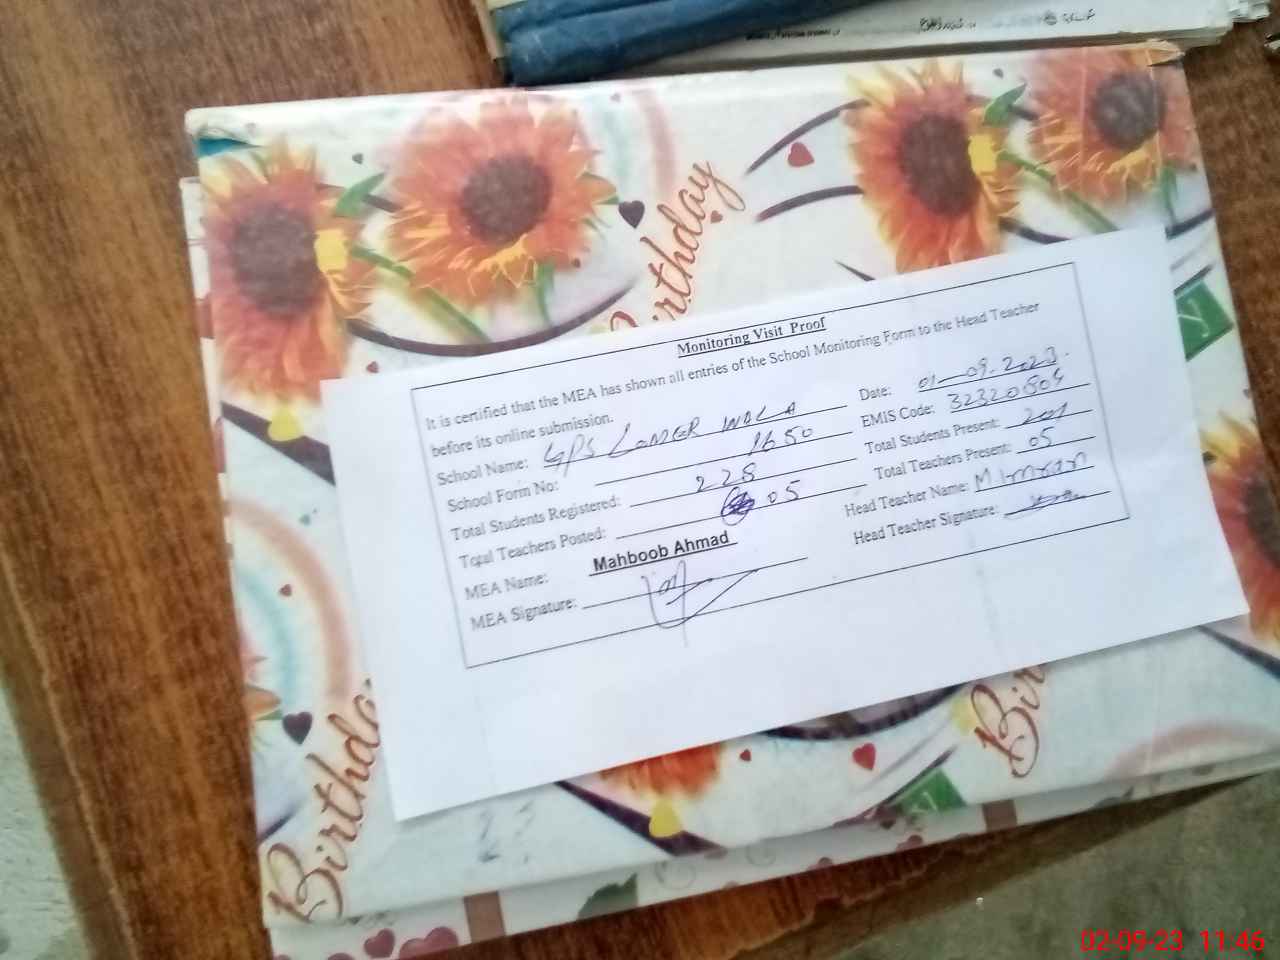 Birthday
Birthday
Monitoring Visit Proof
It is certified that the MEA has shown all entries of the School Monitoring Form to the Head Teacher
before its online submission.
Date: 01-09-2023.
School Name: GPS LANGER WALA
EMIS Code: 32320804
School Form No: 1650
Total Students Present: 201
Total Students Registered: 228
Total Teachers Present: 05
Total Teachers Posted: 05
Head Teacher Name: M Imran
MEA Name: Mahboob Ahmad
Head Teacher Signature:
MEA Signature:
Birthday
02-09-23 11:46